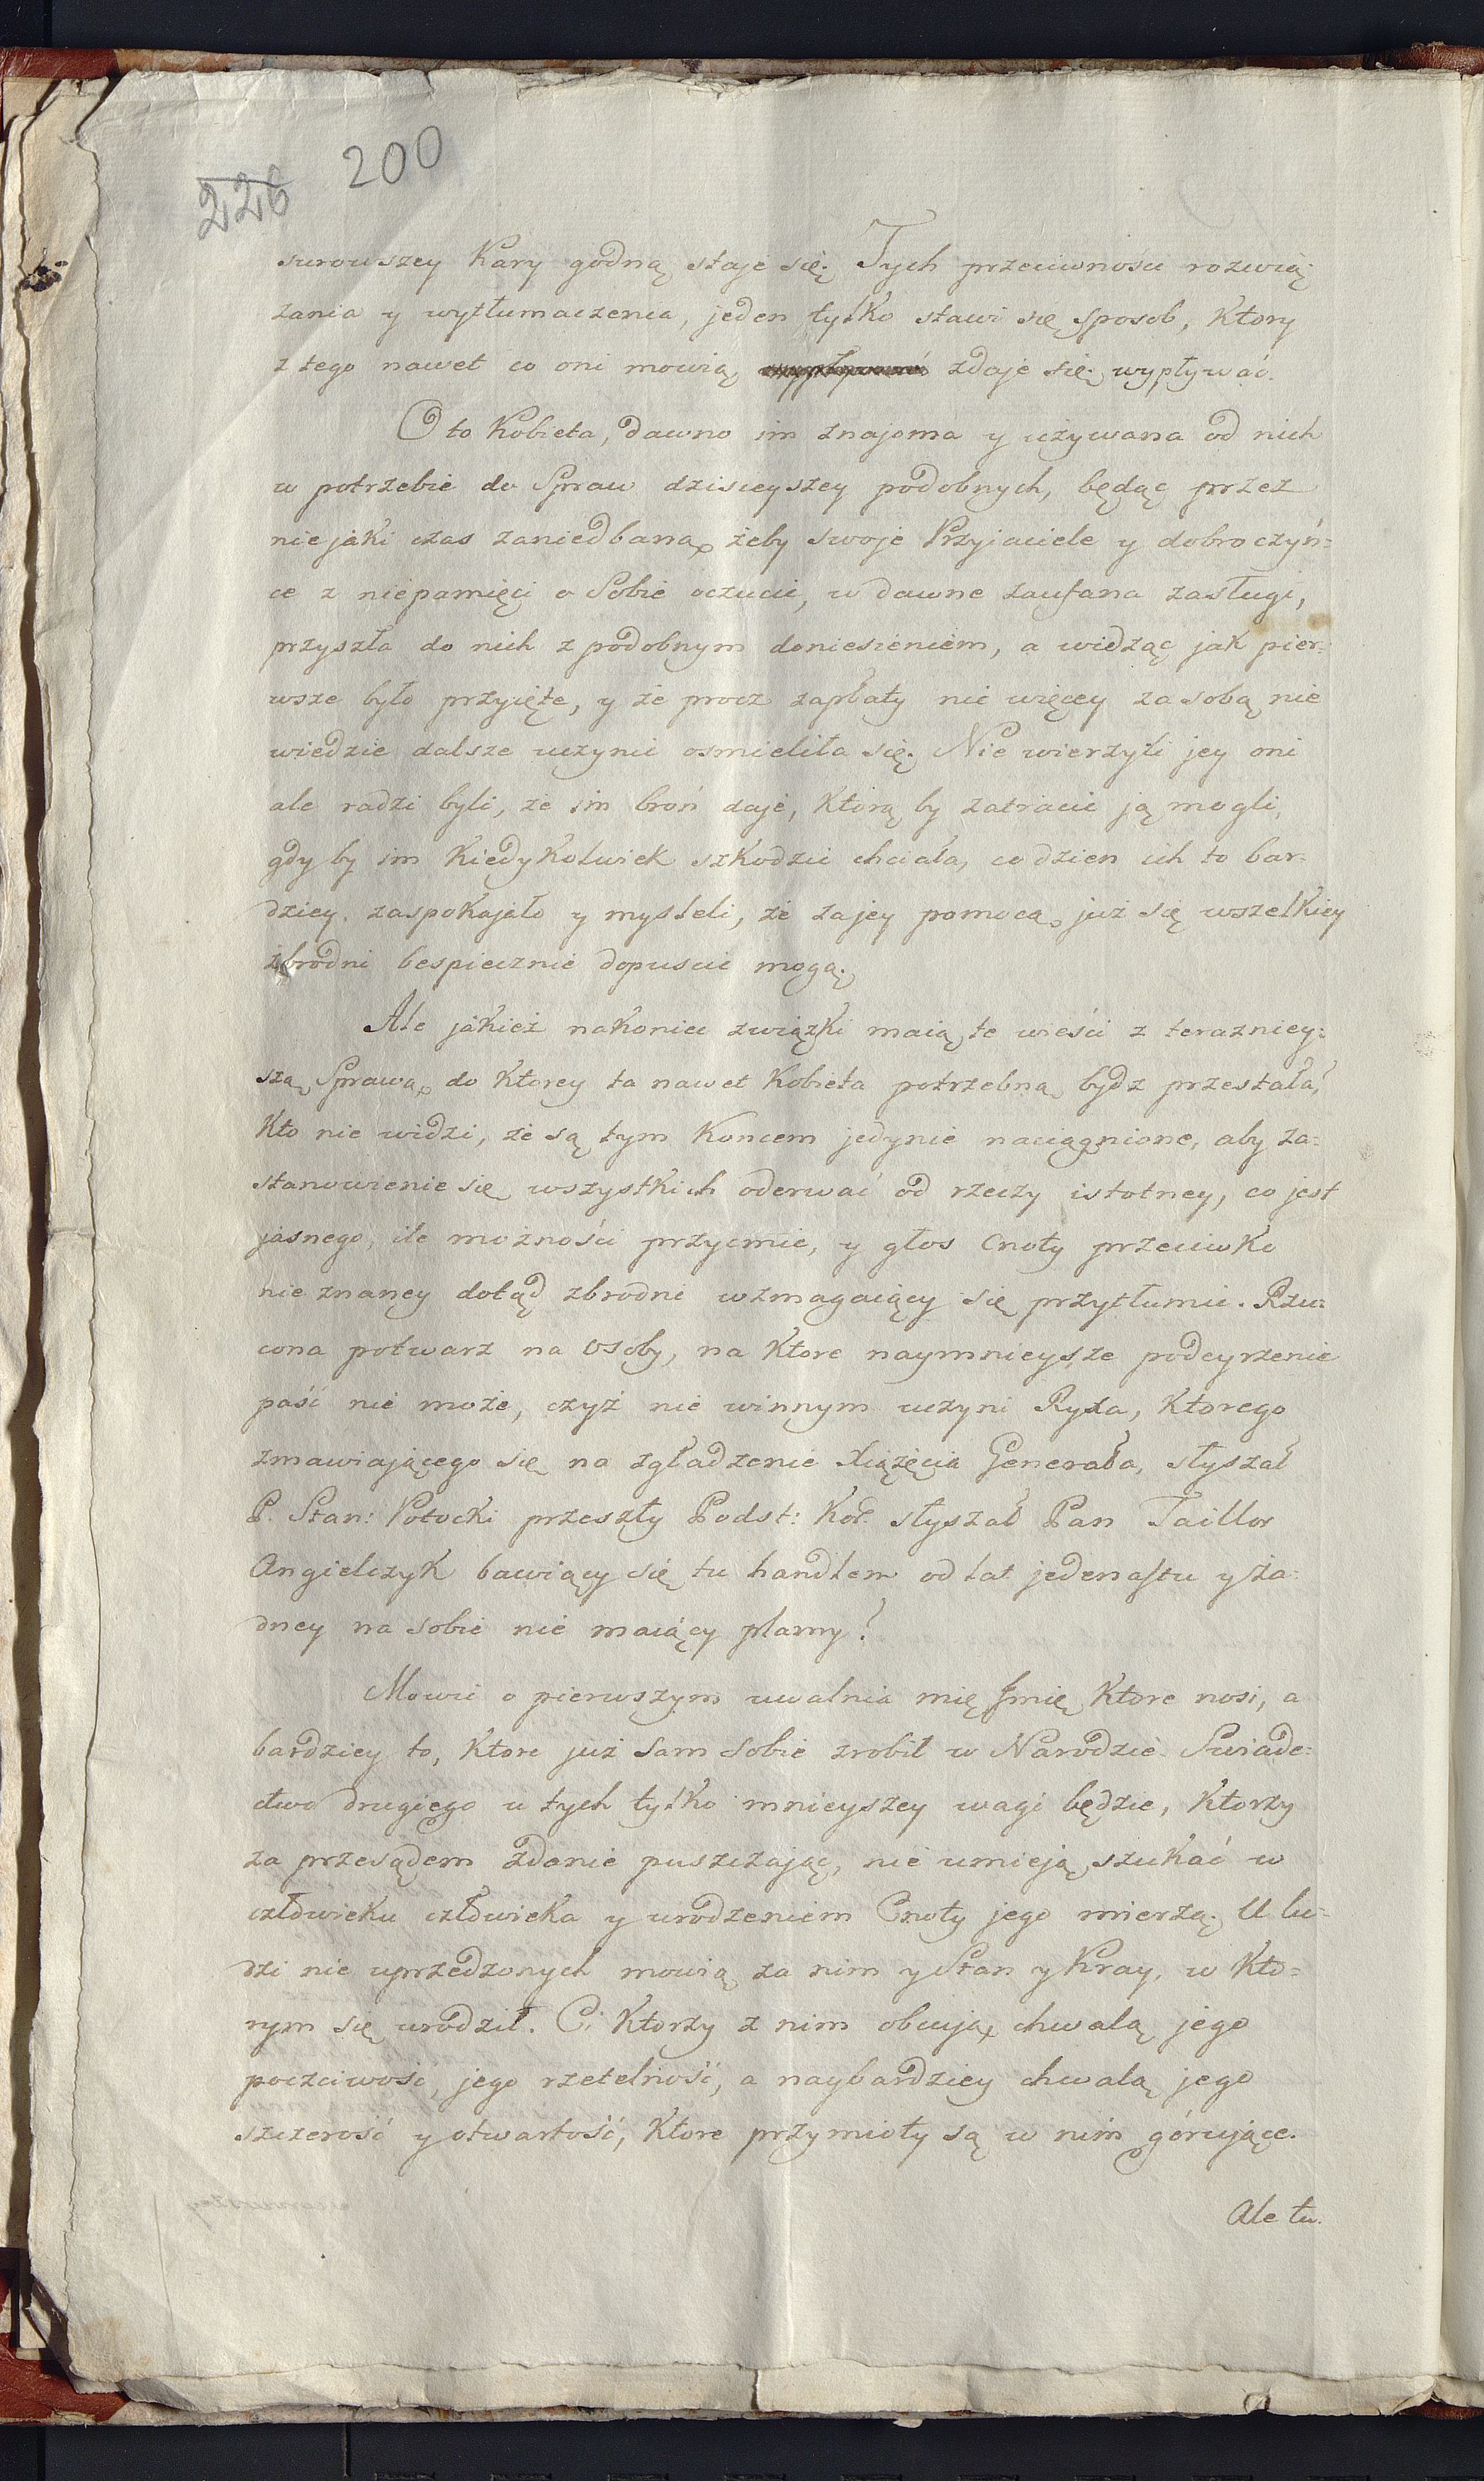 226 200
surowszey Kary godną staje się. Tych przeciwności rozwią:
zania y wytłumaczenia, jeden tylko stawi się sposob, Ktory
z tego nawet co oni mowią, zdaje się wypływać.
Oto Kobieta, dawno im znajoma y używana od nich
w potrzebie do Spraw dzisieyszey podobnych, będąc przez
niejaki czas zaniedbana, żeby swoje Przyiaciele y dobroczyń:
ce z niepamięci o Sobie ocucić, w dawne zaufana zasługi,
przyszła do nich z podobnym doniesieniem, a widząc jak pier:
wsze było przyięte, y że procz zapłaty nic więcey za sobą nie
wiedzie dalsze uczynić osmieliła się. Nie wierzyli jey oni
ale radzi byli, że im broń daje, Ktorą by zatracić ją mogli,
gdy by im Kiedykolwiek szkodzić chciała, co dzien ich to bar:
dziey zaspokajało y mysleli, że za jey pomocą, już się wszelkiey
zbrodni bespiecznie dopuscić mogą.
Ale jakież nakoniec związki maią te wieści z terazniey:
szą Sprawą, do Ktorey ta nawet Kobieta potrzebną bydz przestała,
Kto nie widzi, że są tym Koncem jedynie naciągnione, aby za:
stanowienie się wszystkich oderwać od rzeczy istotney, co jest
jasnego, ile możności przycmić, y głos Cnoty przeciwko
nie znaney dotąd zbrodni wzmagaiący się przytłumić. Rzu:
cona potwarz na osoby, na Ktore naymnieysze podeyrzenie
paść nie może, czyż nie winnym uczyni Ryxa, Ktorego
zmawiającego się na zgładzenie Xiążęcia Generała, słyszał
P. Stan: Potocki przeszły Podst: Kor. słyszał Pan Taillor
Angielczyk bawiący się tu handlem od lat jedenastu y ża:
dney na sobie nie maiący plamy?
Mowić o pierwszym uwalnia mię Jmię Ktore nosi, a
bardziey to, Ktore już sam sobie zrobił w Narodzie. Swiade:
ctwo drugiego u tych tylko mnieyszey wagi będzie, Ktorzy
za przesądem zdanie puszczając, nie umieją szukać w
człowieku człowieka y urodzeniem Cnoty jego mierzą. U lu:
dzi nie uprzedzonych mowią za nim y Stan y Kray, w Kto:
rym się urodził. Ci Ktorzy z nim obcują, chwalą jego
poczciwość, jego rzetelność, a naybardziey chwalą jego
szczerość y otwartość, Ktore przymioty są w nim górujące.
Ale tu.